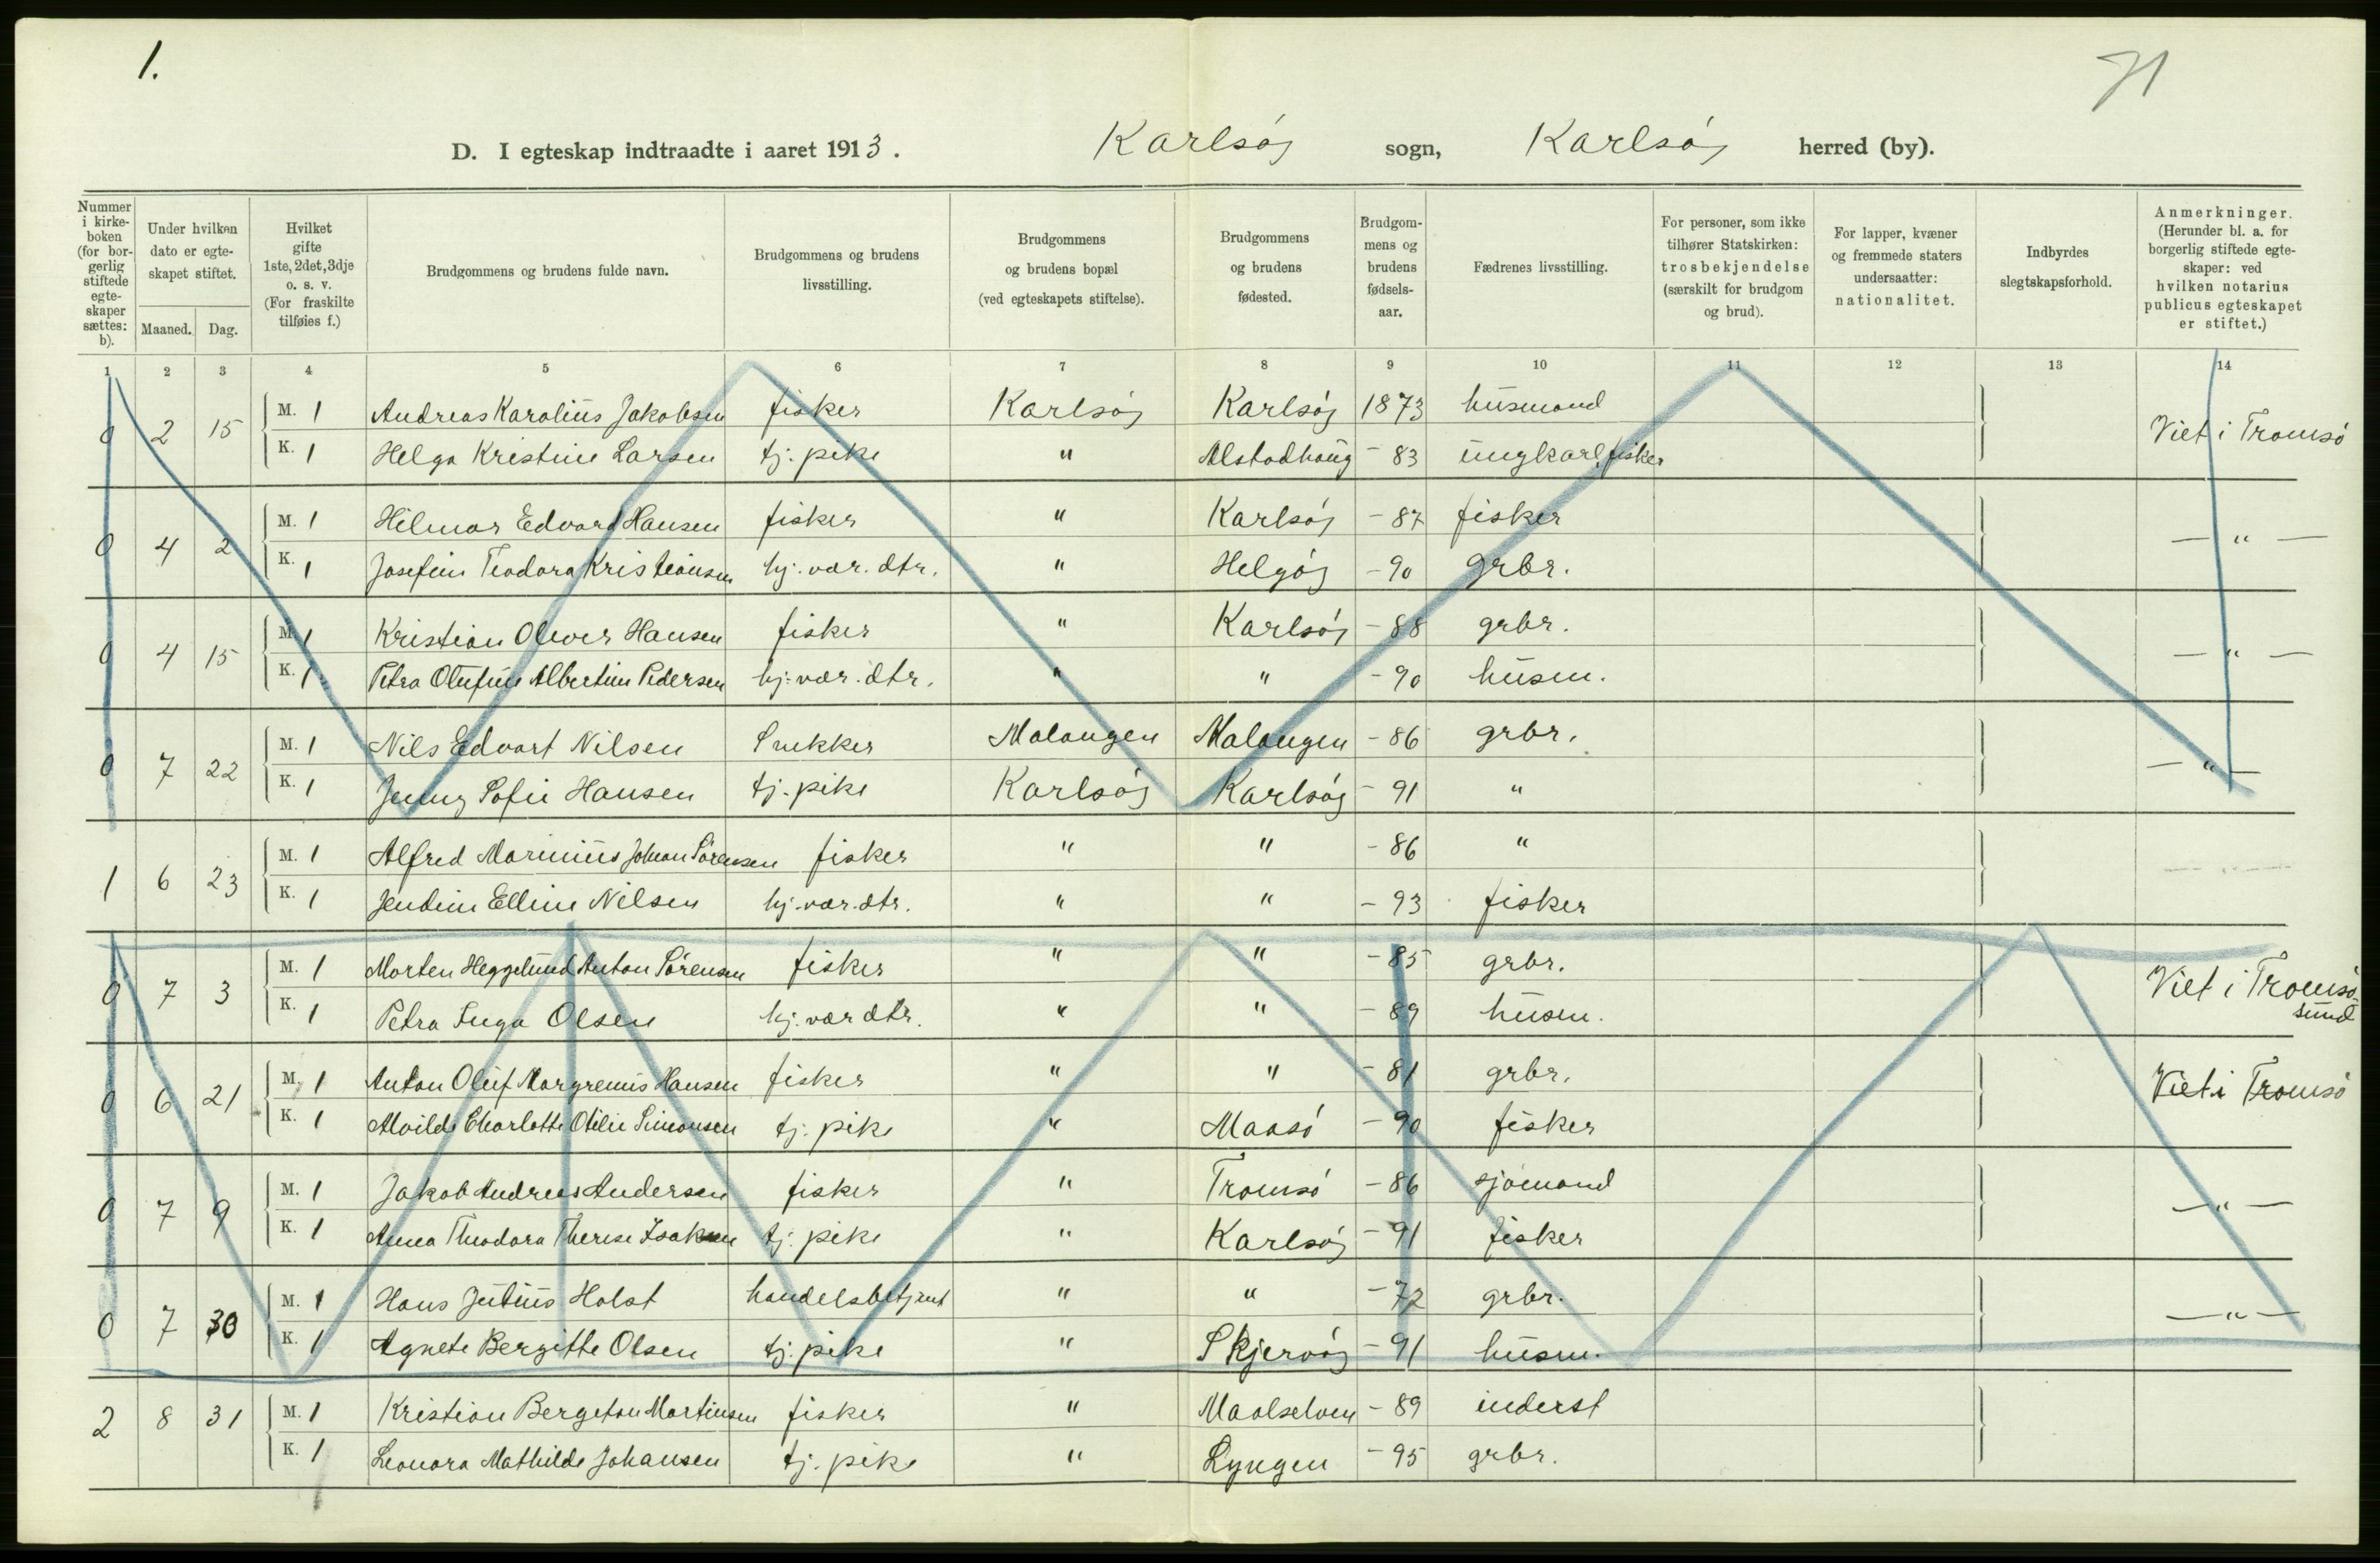 1.
71
D. I egteskap indtraadte i aaret 1913. Karlsøy sogn, Karlsøy herred (by).
Nummer i kirkeboken (for borgerlig stiftede egteskaper sættes: b).
Under hvilken dato er egteskapet stiftet.
Maaned. Dag.
Hvilket gifte 1ste, 2det, 3dje o. s. v. (For fraskilte tilføies f.)
Brudgommens og brudens fulde navn.
Brudgommens og brudens livsstilling.
Brudgommens og brudens bopæl (ved egteskapets stiftelse).
Brudgommens og brudens fødested.
Brudgommens og brudens fødselsaar.
Fædrenes livsstilling.
For personer, som ikke tilhører Statskirken: trosbekjendelse (særskilt for brudgom og brud).
For lapper, kvæner og fremmede staters undersaatter: nationalitet.
Indbyrdes slegtskapsforhold.
Anmerkninger. (Herunder bl. a. for borgerlig stiftede egteskaper: ved hvilken notarius publicus egteskapet er stiftet.)
1 2 3 4 5 6 7 8 9 10 11 12 13 14
0 2 15 M. 1 Andreas Karolius Jakobsen fisker Karlsøy Karlsøy 1873 husmand Viet i Tromsø
K. 1 Helga Kristine Larsen tj. pike " Alstadhoug - 83 ungkarl, fisker
0 4 2 M. 1 Hilmar Edvard Hansen fisker " Karlsøy - 87 fisker — " —
K. 1 Josefine Teodora Kristiansen hj. vær. dtr. " Helgøy - 90 grbr.
0 4 15 M. 1 Kristian Oliver Hansen fisker " Karlsøy - 88 grbr. — " —
K. 1 Petra Olufine Albertine Pedersen hj. vær. dtr. " " - 90 husm.
0 7 22 M. 1 Nils Edvart Nilsen Snekker Malangen Malangen - 86 grbr. — " —
K. 1 Jenny Sofie Hansen tj. pike Karlsøy Karlsøy - 91 "
1 6 23 M. 1 Alfred Marinius Johan Sørensen fisker " " - 86 "
K. 1 Jendine Elline Nilsen hj. vær. dtr. " " - 93 fisker
0 7 3 M. 1 Morten Heggelund Anton Sørensen fisker " " - 85 grbr. Viet i Tromsø-
sund
K. 1 Petra Inga Olsen hj. vær dtr. " " - 89 husm.
0 6 21 M. 1 Anton Oluf Margrenius Hansen fisker " " - 81 grbr. Viet i Tromsø
K. 1 Alvilde Charlotte Otilie Simonsen tj. pike " Maasø - 90 fisker
0 7 9 M. 1 Jakob Andreas Andersen fisker " Tromsø - 86 sjømand — " —
K. 1 Anna Theodora Therese Isaksen tj. pike " Karlsøy - 91 fisker
0 7 30 M. 1 Hans Julius Holst handelsbetjent " " - 72 grbr. — " —
K. 1 Agnete Bergitte Olsen tj. pike " Skjervøy - 91 husm.
2 8 31 M. 1 Kristian Bergeton Martinsen fisker " Maalselven - 89 inderst
K. 1 Leonora Mathilde Johansen tj. pike " Lyngen - 95 grbr.